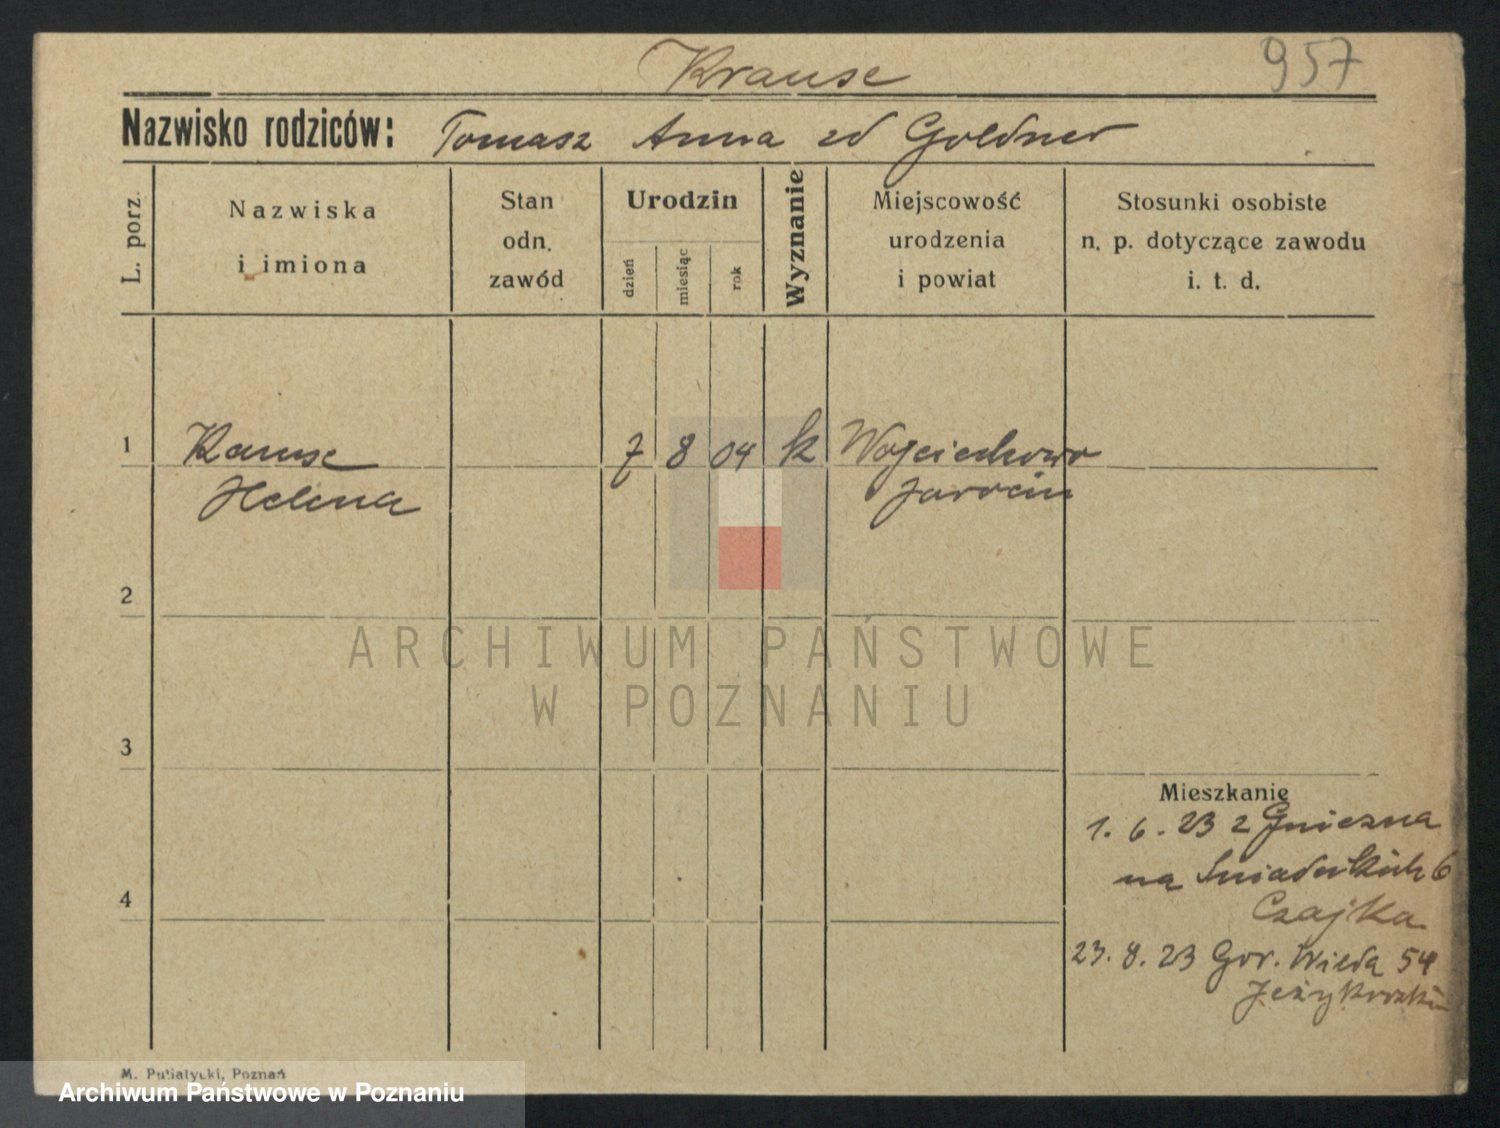 Krause 957
Nazwisko rodziców: Tomasz Anna zd Goldner
L. porz.
Nazwiska
i imiona
Stan
odn.
zawód
Urodzin
dzień
miesiąc
rok
Wyznanie
Miejscowość
urodzenia
i powiat
Stosunki osobiste
n. p. dotyczące zawodu
i. t. d.
1 Krause 7 8 04 k Wojciechowo
Helena Jarocin
2
ARCHIWUM PAŃSTWOWE
W POZNANIU
3
Mieszkanie
1. 6. 23 z Gniezna
na Śniadeckich 6
4
Czajka
23. 8. 23 Gór. Wilda 54
M. Putiatycki, Poznań
Archiwum Państwowe w Poznaniu